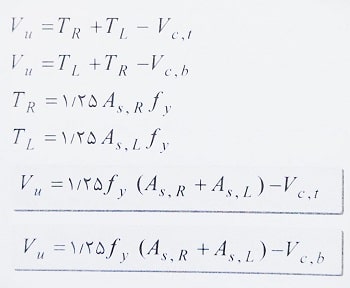 V_u = T_R + T_L − V_{c,t}
V_u = T_L + T_R − V_{c,b}
T_R = ۱/۲۵ A_{s,R} f_y
T_L = ۱/۲۵ A_{s,L} f_y
V_u = ۱/۲۵ f_y (A_{s,R} + A_{s,L}) − V_{c,t}
V_u = ۱/۲۵ f_y (A_{s,R} + A_{s,L}) − V_{c,b}